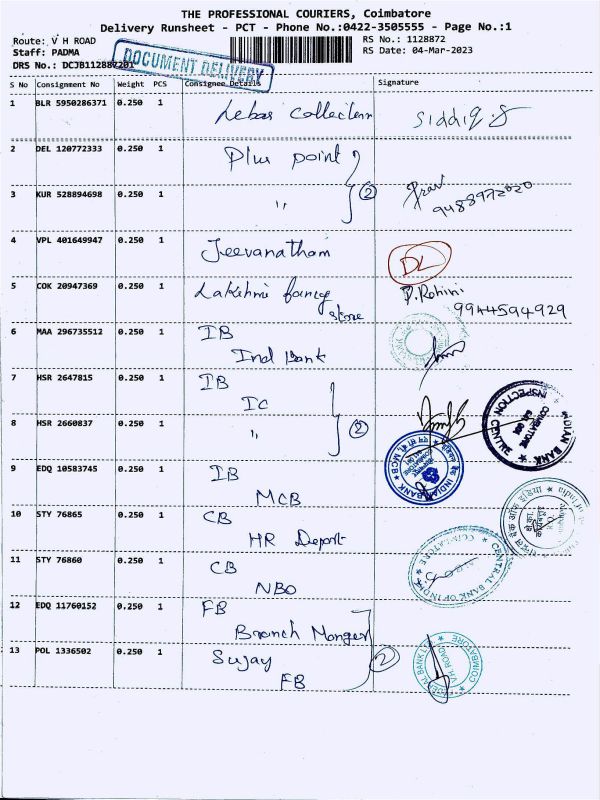 THE PROFESSIONAL COURIERS, Coimbatore
Delivery Runsheet - PCT - Phone No.:0422-3505555 - Page No.:1
Route: V H ROAD
RS No.: 1128872
Staff: PADMA
RS Date: 04-Mar-2023
DRS No.: DCJB112887201
DOCUMENT DELIVERY
S No Consignment No Weight PCS Consignee Details Signature
1 BLR 5950286371 0.250 1 Lebas Collection Siddiq.S
2 DEL 120772333 0.250 1 Plus point
3 KUR 528894698 0.250 1 " 2
9488972020
4 VPL 401649947 0.250 1 Jeevanatham DL
5 COK 20947369 0.250 1 Lakshmi fancy store P.Rohini
9944594929
6 MAA 296735512 0.250 1 IB
Ind Bank
7 HSR 2647815 0.250 1 IB
IC
8 HSR 2660837 0.250 1 " 2
INDIAN BANK
INSPECTION CENTRE
COIMBATORE
9 EDQ 10583745 0.250 1 IB
MCB
INDIAN BANK
MCB
10 STY 76865 0.250 1 CB
HR Deport
11 STY 76860 0.250 1 CB
NBO
CENTRAL BANK OF INDIA
COIMBATORE
12 EDQ 11760152 0.250 1 FB
Branch Manger
13 POL 1336502 0.250 1 Sujay 2
FB
V.H. ROAD
COIMBATORE